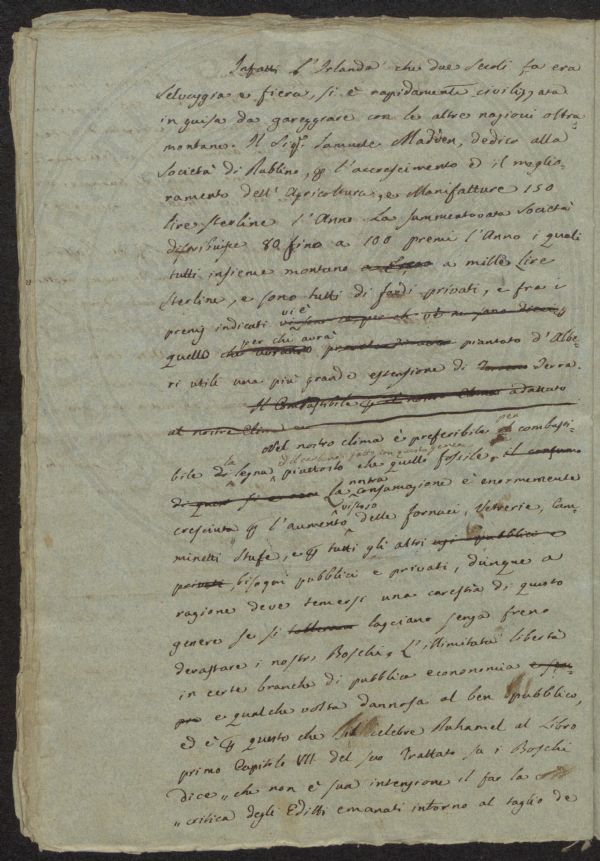 Infatti l'Irlanda che due Secoli fa era
Selvaggia e fiera, si è rapidamente civilizzata
in guisa da gareggiare con le altre nazioni oltra-
montane. Il Sigr. Samuele Madden, dedicò alla
Società di Dublino, per l'accrescimento ed il meglio-
ramento dell'Agricoltura, e Manifatture 150
lire sterline l'Anno. La summentovata Società
distribuisce 80 fino a 100 premi l'Anno i quali
tutti insieme montano a mille Lire
Sterline, e sono tutti di fondi privati, e fra i
premj indicati vi è
quello per chi avrà piantato d'Albe-
ri utili una più grande estensione di Terra.
Il Combustibile per il nostro Clima adattato
al nostro Clima
Nel nostro clima è preferibile per combusti-
bile la legna piuttosto che quello fossile, il consumo
di si La nostra consumazione è enormemente
cresciuta per l'aumento vistoso delle fornaci, Vetrerie, Cam-
minetti Stufe, e per tutti gli altri usi pubblici e
privati, bisogni pubblici e privati, dunque a
ragione deve temersi una carestia di questo
genere se si lasciano senza freno
devastare i nostri Boschi. L'illimitata libertà
in certe branche di pubblica econonomia
e qualche volta dannosa al ben pubblico,
ed è per questo che il celebre Duhamel al Libro
primo Capitolo VII del suo Trattato su i Boschi
dice „ che non è sua intenzione il far la
„ critica degli Editti emanati intorno al taglio de